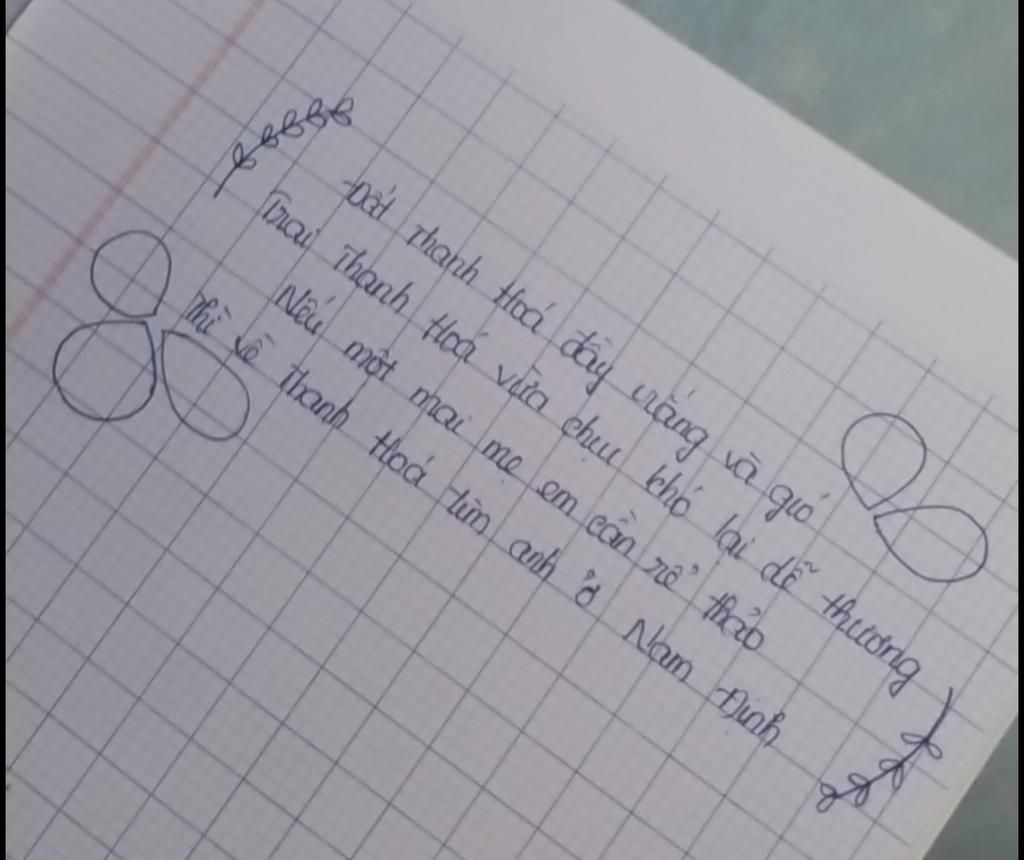 Đất Thanh Hoá đầy nắng và gió
Trai Thanh Hoá vừa chịu khó lại dễ thương
Nếu một mai mẹ em cần rể thảo
Thì về Thanh Hoá tìm anh ở Nam Định